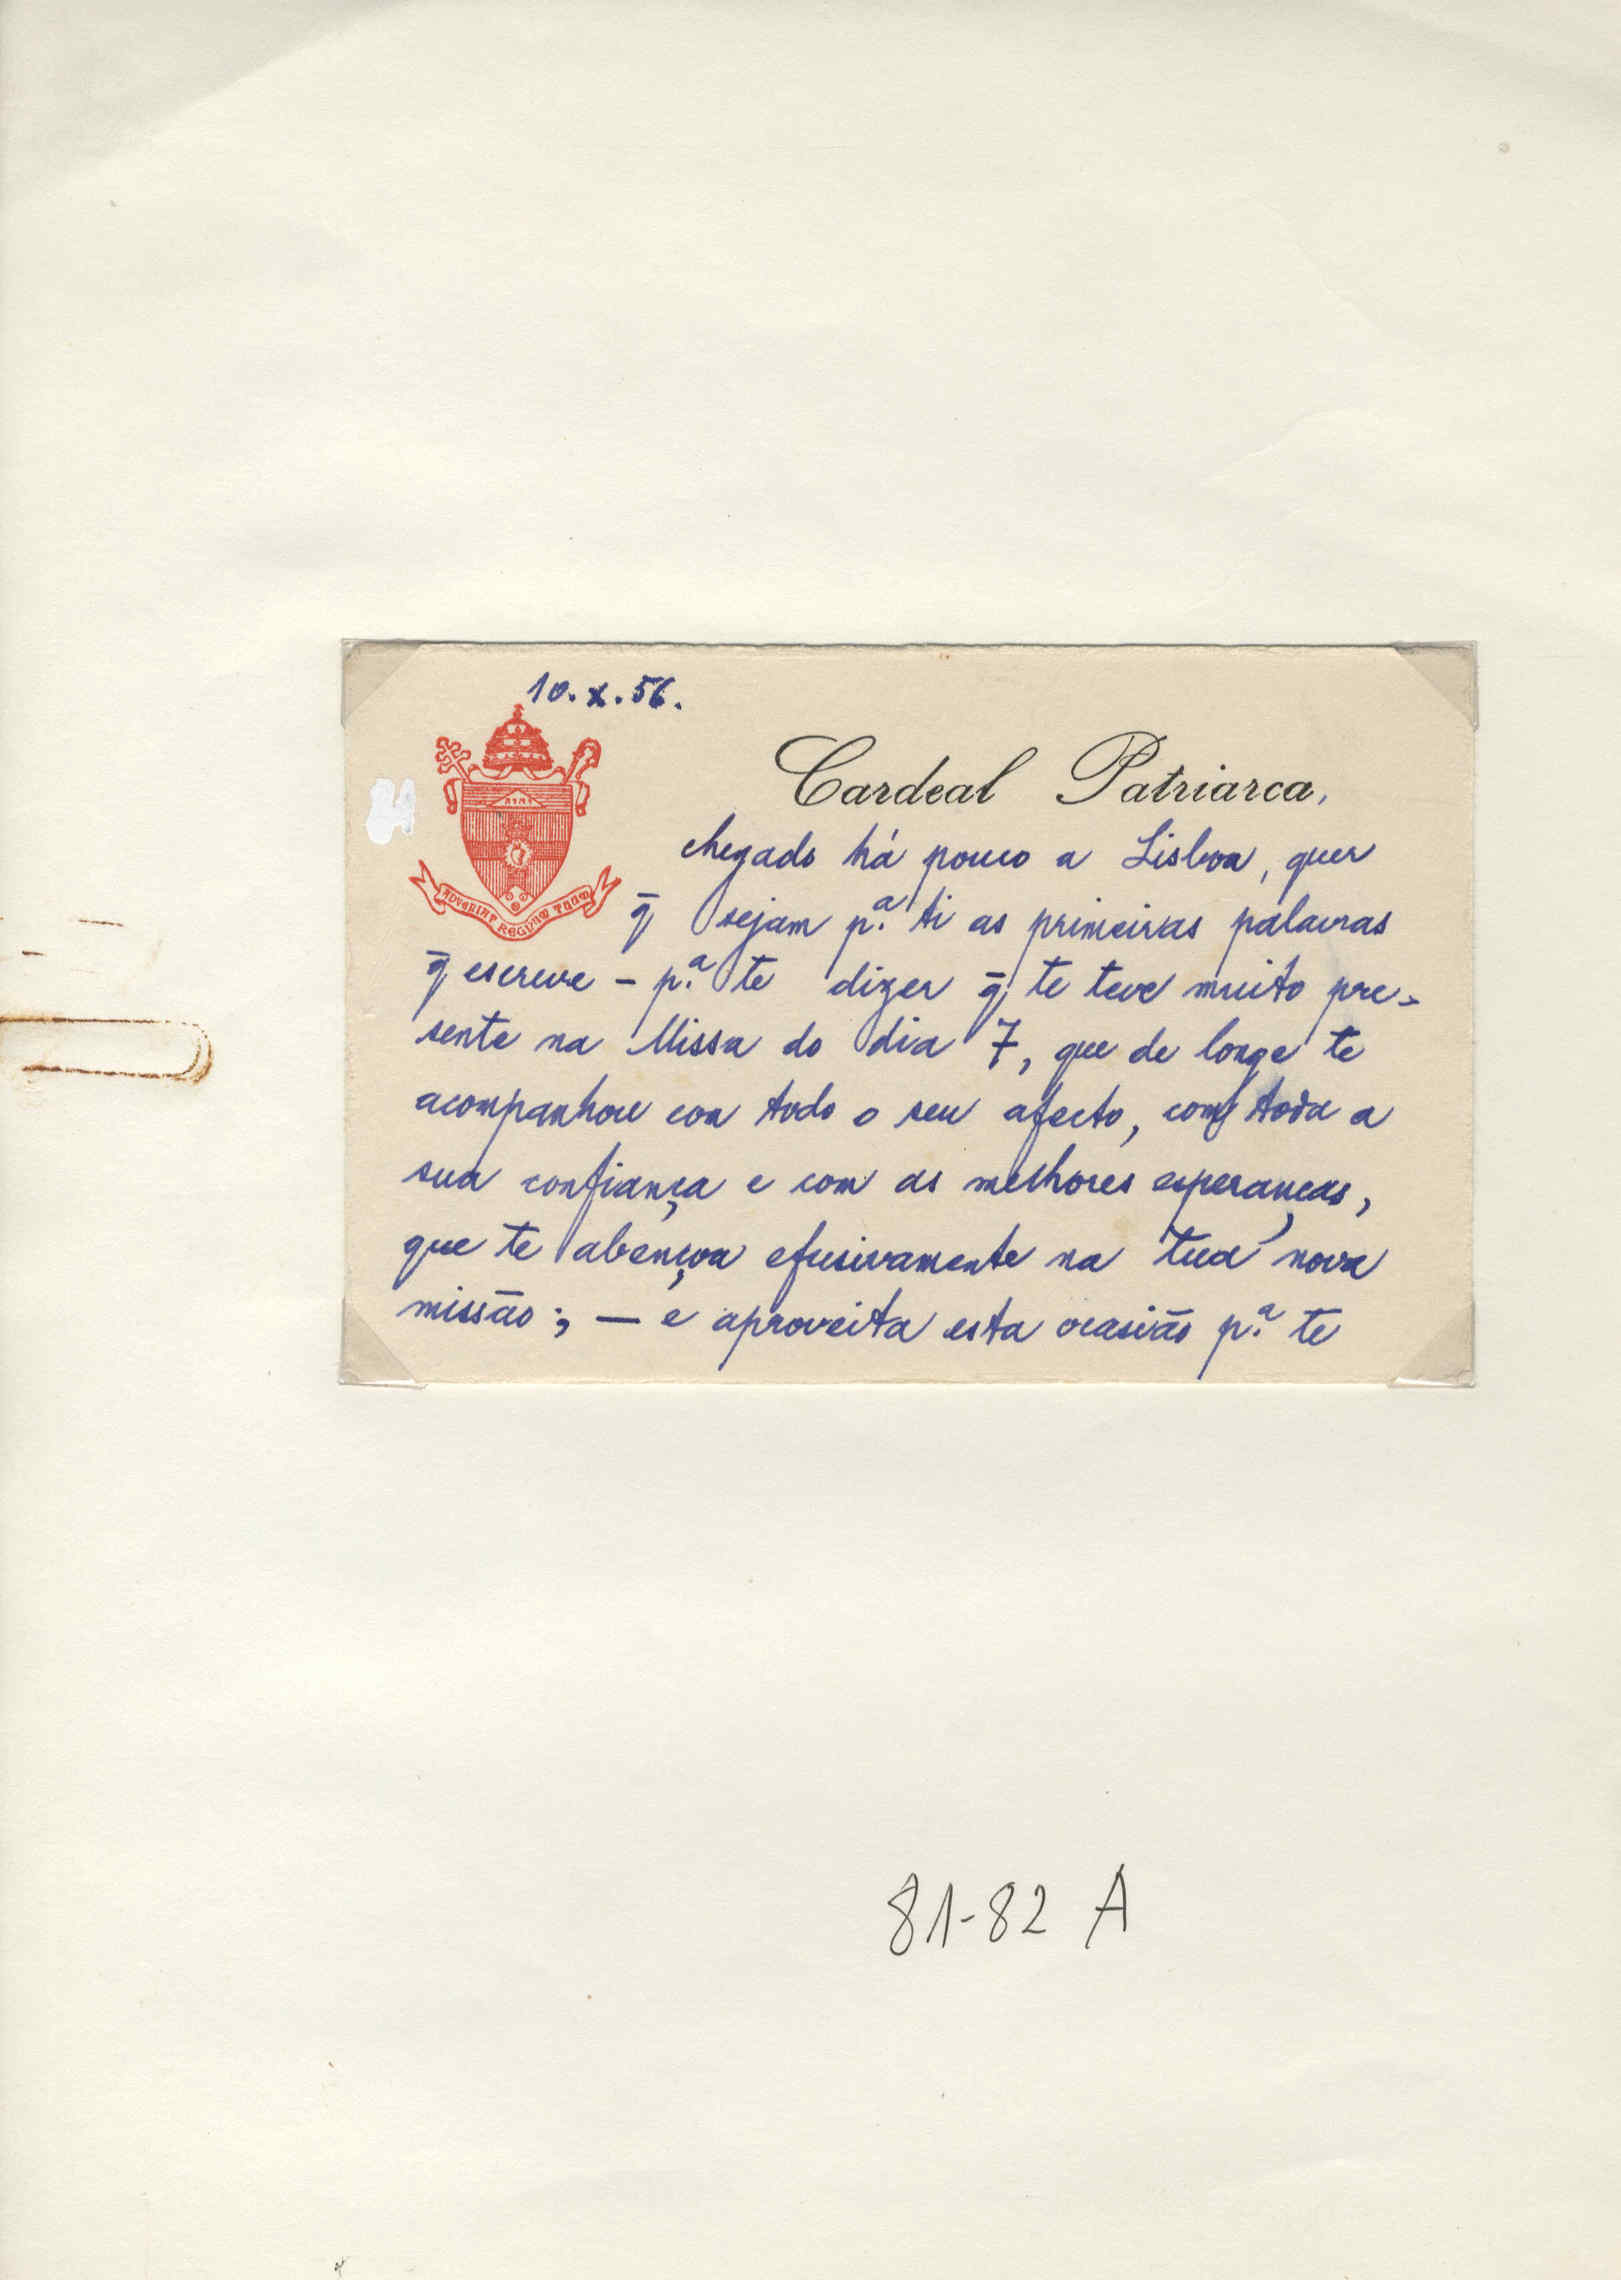 10.X.56.
Cardeal Patriarca,
ADVENIAT REGNUM TUUM
chegado há pouco a Lisboa, quer
q̄ sejam p.ª ti as primeiras palavras
q̄ escreve – p.ª te dizer q̄ te teve muito pre-
sente na Missa do dia 7, que de longe te
acompanhou com todo o seu afecto, com toda a
sua confiança e com as melhores esperanças,
que te abençoa efusivamente na tua nova
missão; — e aproveita esta ocasião p.ª te
81-82 A